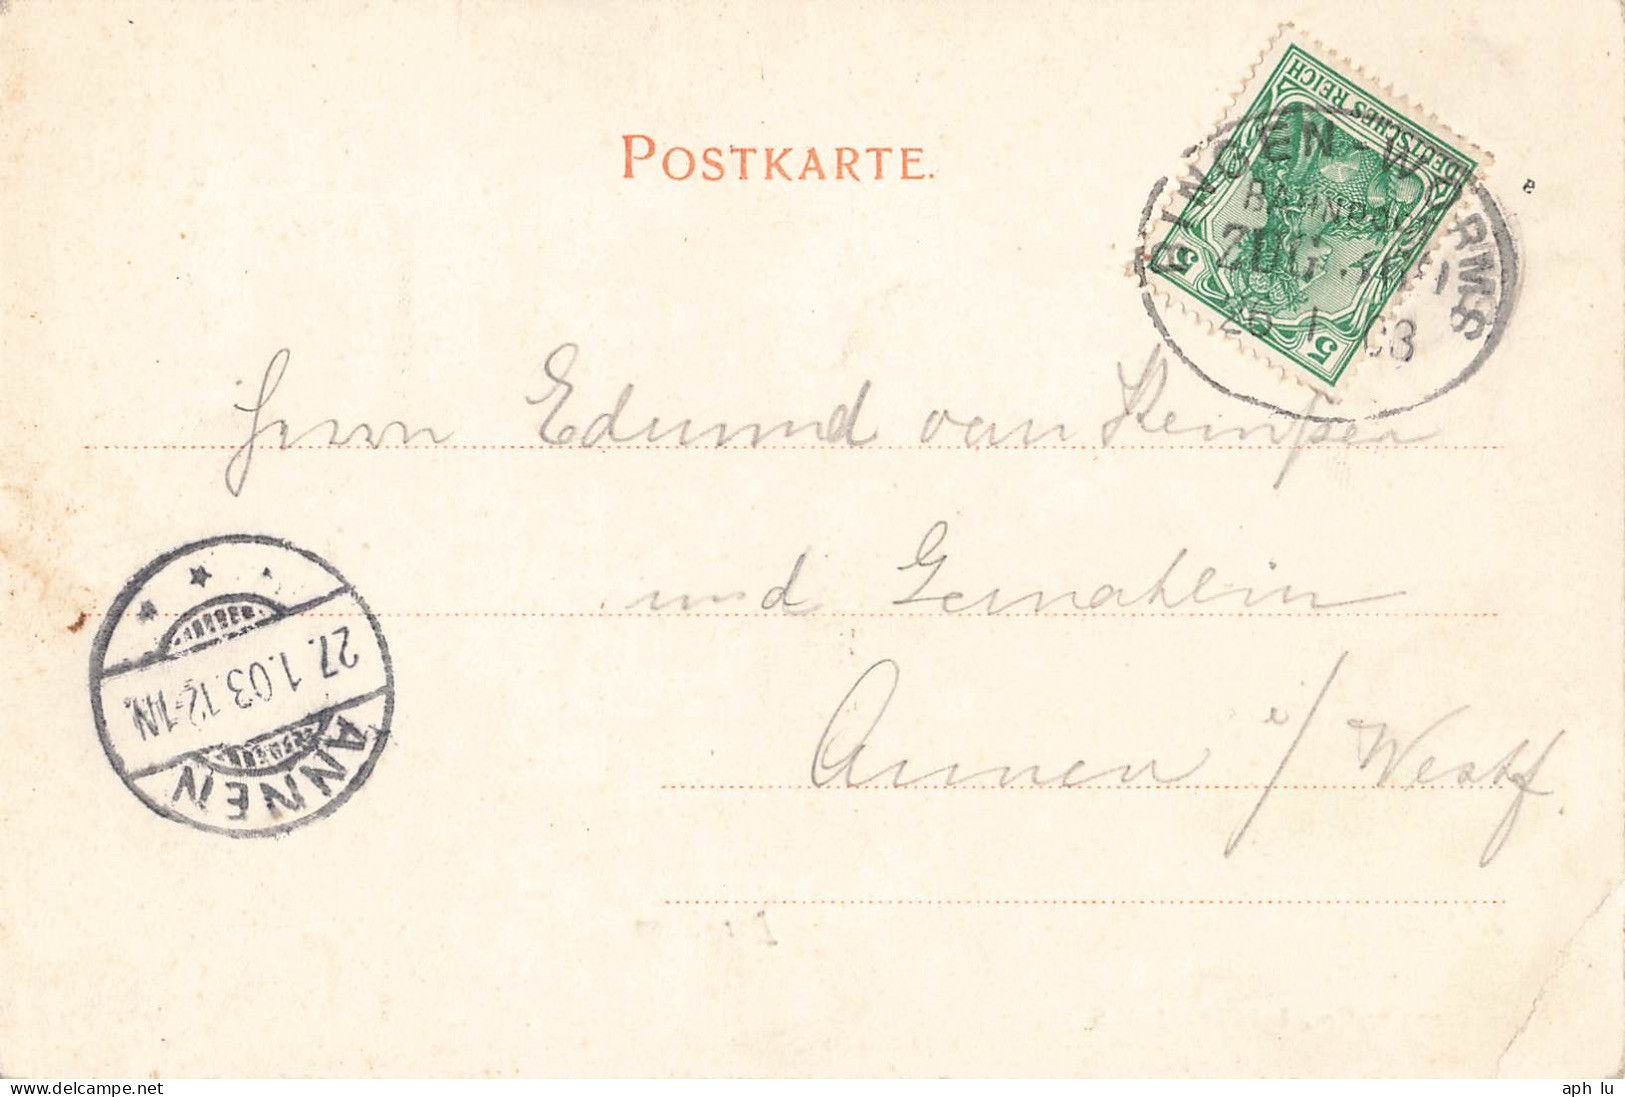 POSTKARTE.
DEUTSCHES REICH
5 5
BINGEN-WORMS
BAHNPOST
ZUG
26 1 03
Herrn Edmund van Kempen
und Gemahlin
Annen i/Westf.
27.1.03.12-1N.
ANNEN
delcampe.net
aph_lu